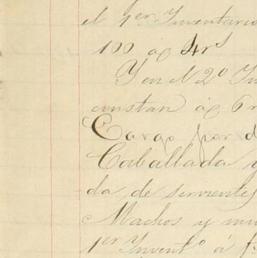 el 1er Inventario
100 ag 4 rs
Y en el 2o In
constan ag 6 r
Cargo por d
Caballada y
da de sirvientes
Machos y mu
1er Invento á f